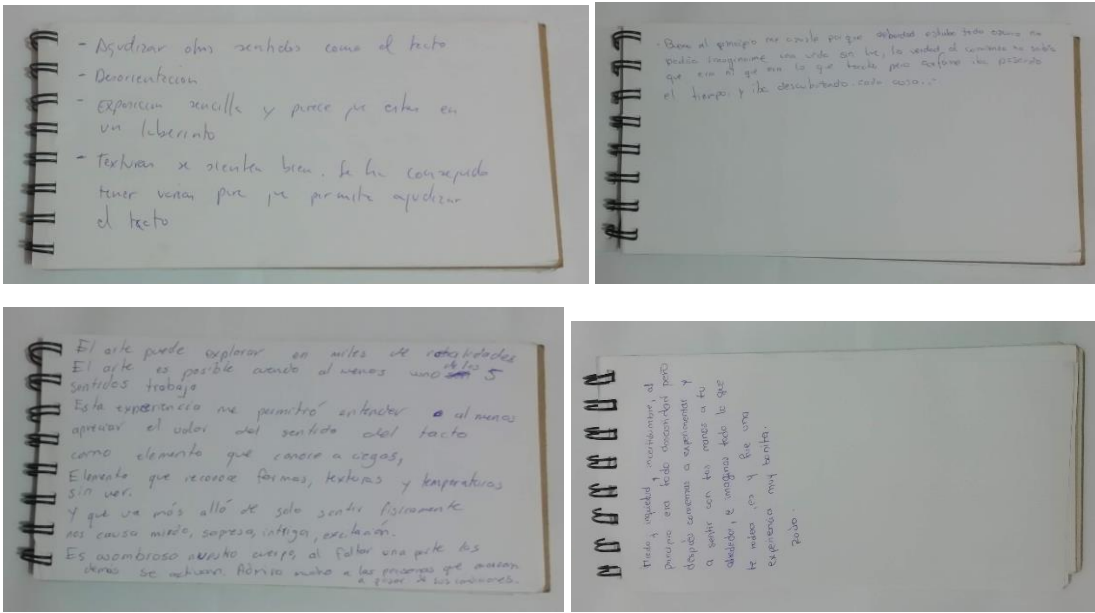 - Agudizar otros sentidos como el tacto
- Desorientación
- Exposición sencilla y parece que estas en
un laberinto
- Texturas se sienten bien. Se ha conseguido
tener varias para que permita agudizar
el tacto
- Bueno al principio me asusté porque
podía imaginarme una vida sin luz, la verdad, al comienzo no sabía
que era ni que era lo que tocaba pero conforme iba pasando
el tiempo, y iba descubriendo cada cosa...
El arte puede explorar en miles de
El arte es posible cuando al menos uno de los 5
sentidos trabaja
Esta experiencia me permitió entender o al menos
apreciar el valor del sentido del tacto
como elemento que conoce a ciegas,
Elemento que reconoce formas, texturas y temperaturas
sin ver.
Y que va más allá de solo sentir físicamente
nos causa miedo, sopresa, intriga, excitación.
Es asombroso nuestro cuerpo, al faltar una parte las
demas se activan. Admiro mucho a las personas que
a pesar de sus condiciones.
Miedo, inquietud y incertidumbre, al
principio era todo oscuridad pero
después comienzas a experimentar y
a sentir con tus manos a tu
alrededor, e imaginas todo lo que
te rodea, es y fue una
experiencia muy bonita.